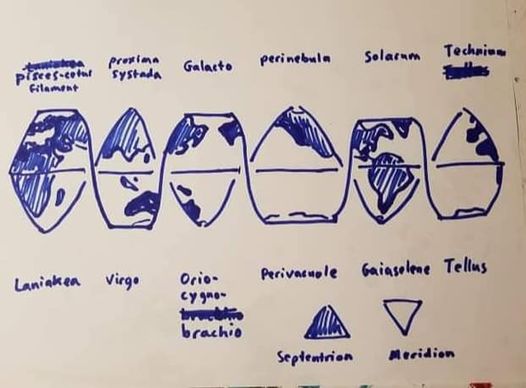 pisces-cetus
Filament
proxima
systada
Galacto
perinebula
Solarum
Technium
Laniakea
Virgo
Orio-
cygno-
brachio
Perivacuole
Gaiaselene
Tellus
Septentrion
Meridion